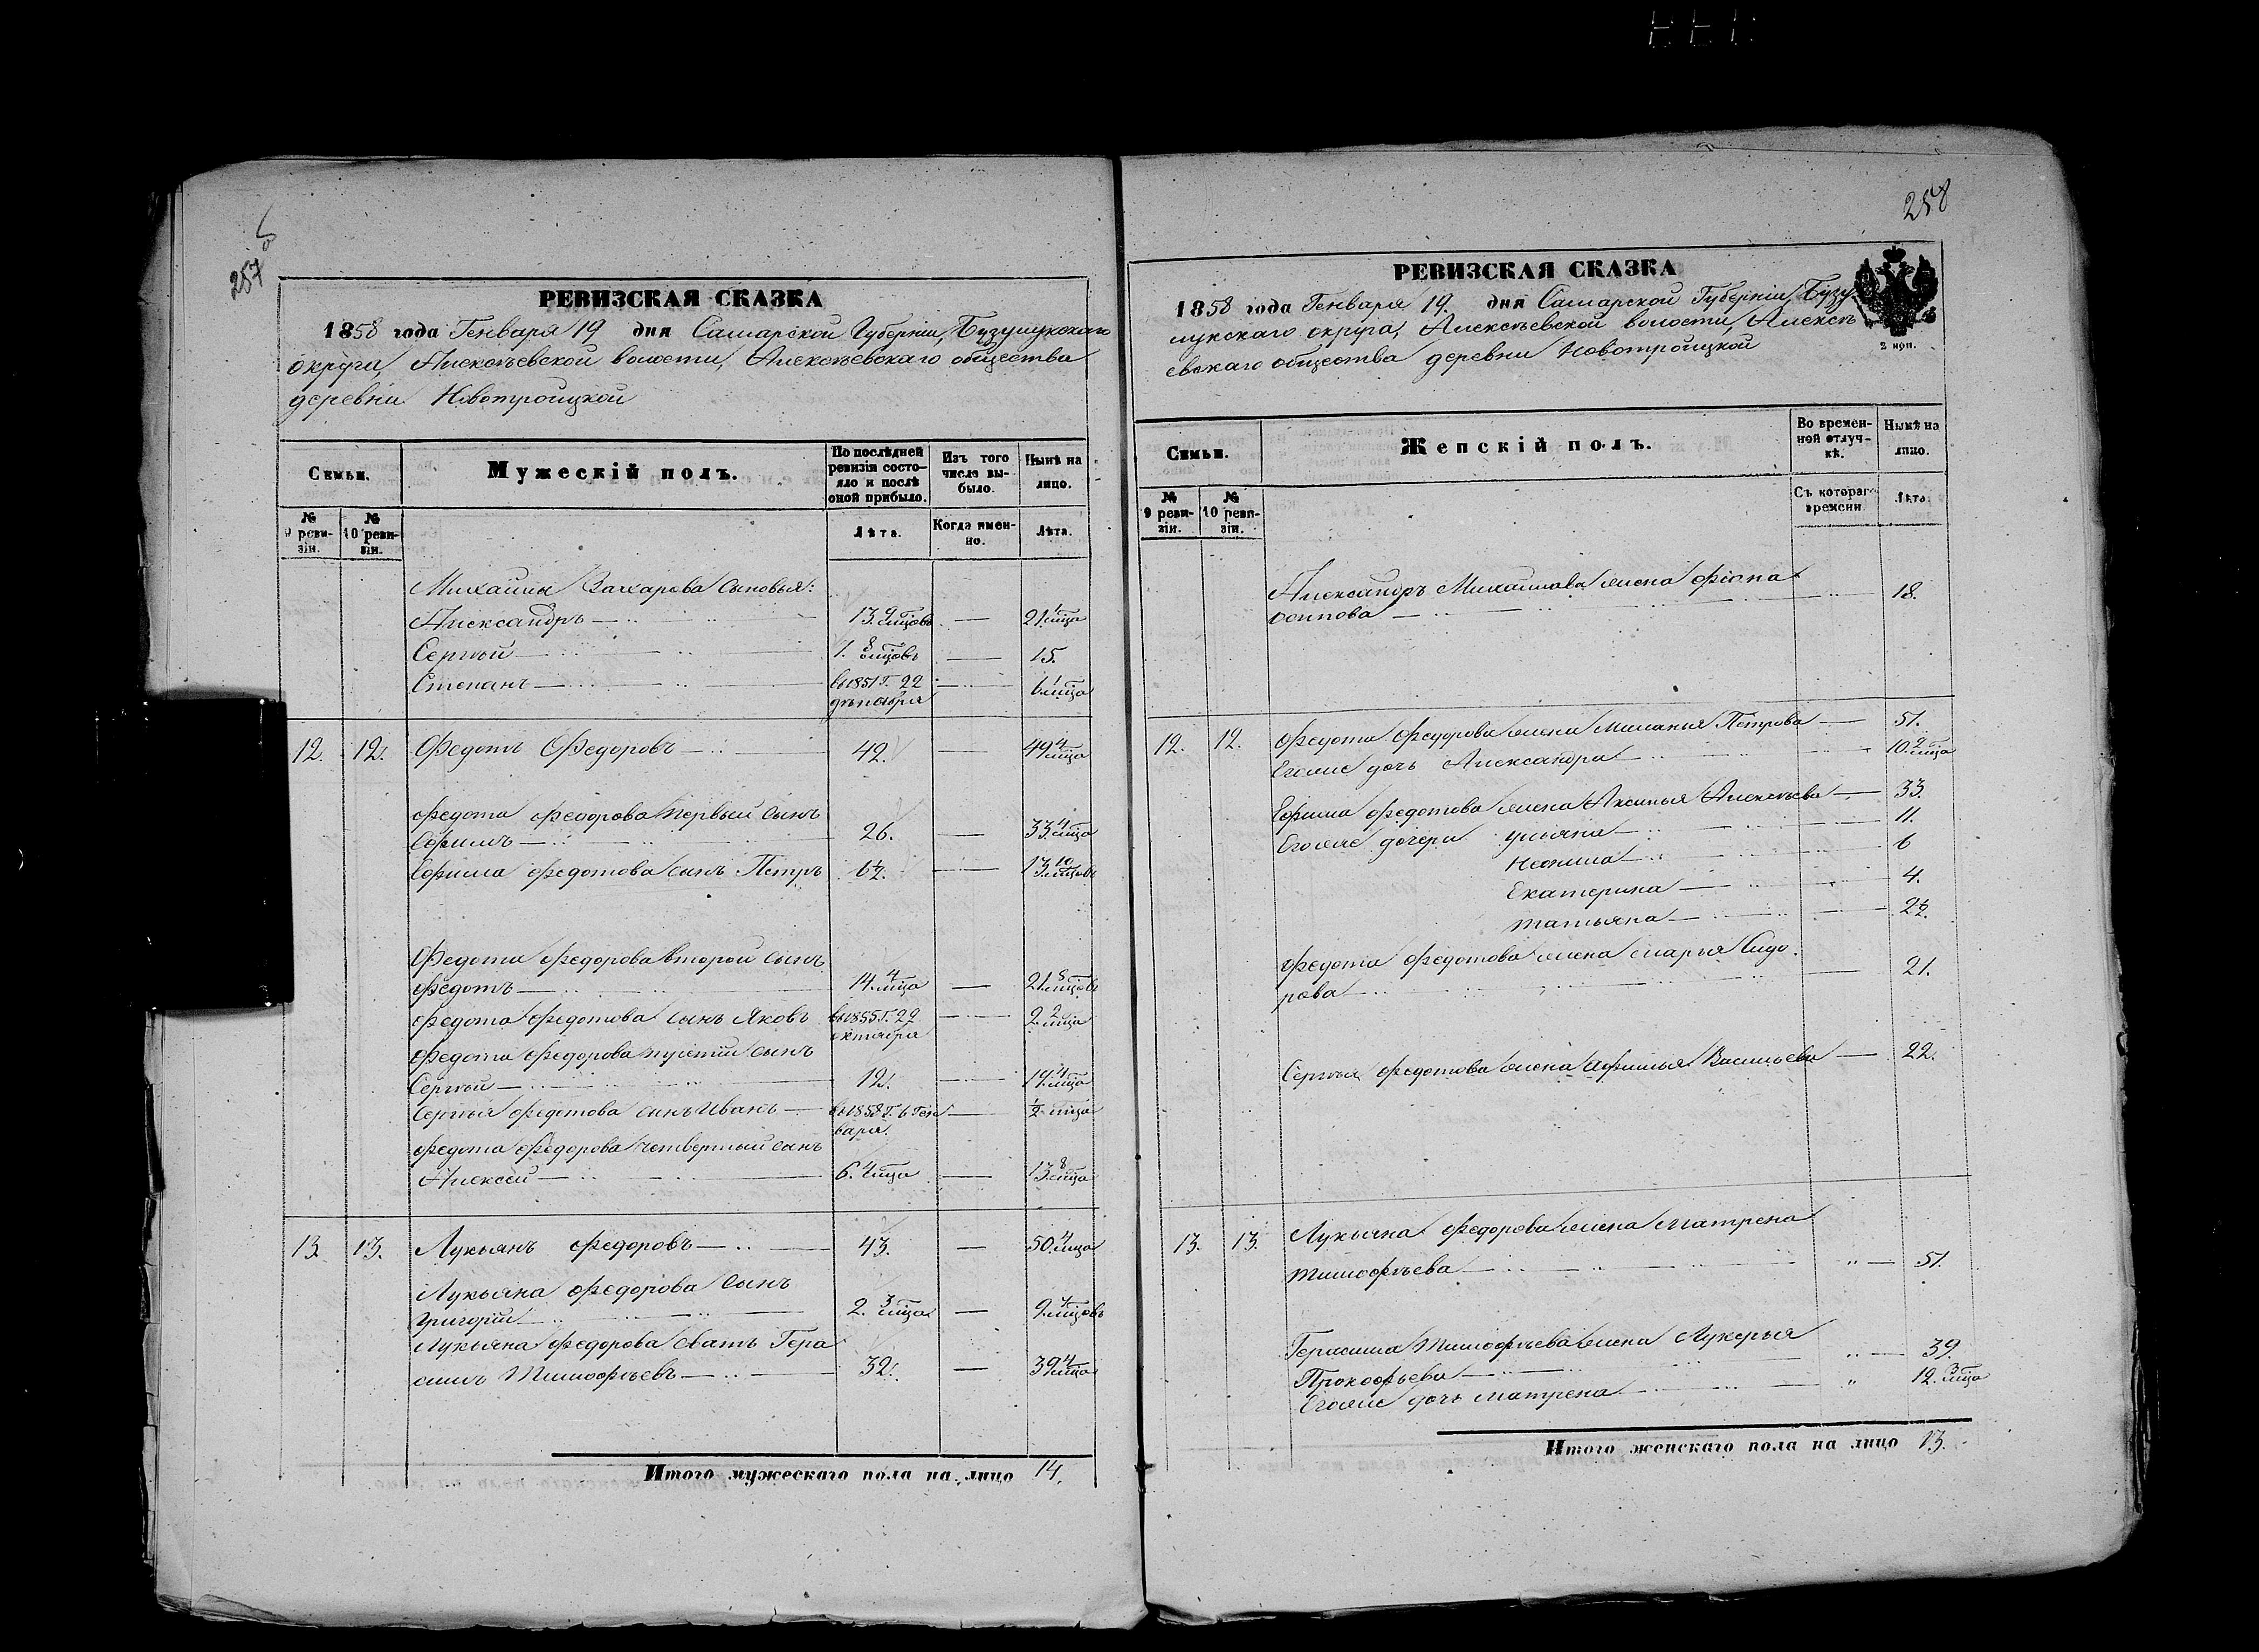 257 об
РЕВИЗСКАЯ СКАЗКА
1858 года Генваря 19 дня Самарской Губерніи, Бузулукскаго
округа, Алексѣевской волости, Алексѣевскаго общества
деревни Новотроицкой
Семьи.
Мужескій полъ.
По послѣдней ревизіи состояло и послѣ оной прибыло.
Изъ того числа выбыло.
Нынѣ на лицо.
№ 9 ревизіи.
№ 10 ревизіи.
Лѣта.
Когда именно.
Лѣта.
Михаилы Захарова сыновья:
Александръ — 13. 9 мцовъ — 21. 1 мца
Сергѣй — 7. 8 мцовъ — 15.
Степанъ — въ 1851 г. 22 — 6. 1 мца
декабря
12. 12. Федотъ Федоровъ — 42. — 49 4 мца
Федота Федорова первый сынъ
Ефимъ — 26. — 33. 4 мца
Ефима Федотова сынъ Петръ 6½. — 13. 10 мцовъ
Федота Федорова второй сынъ
Федотъ — 14. 4 мца — 21. 8 мцовъ
Федота Федотова сынъ Яковъ въ 1855 г. 22 — 2. 2 мца
октября
Федота Федорова третій сынъ
Сергѣй — 12. — 19. 4 мца
Сергѣя Федотова сынъ Иванъ — въ 1858 г. 6 Ген — ½ мца
варя.
Федота Федорова четвертый сынъ
Алексей — 6. 4 мца — 13. 8 мца
13. 13. Лукьянъ Федоровъ — 43. — 50. 4 мца
Лукьяна Федорова сынъ
Григорій — 2. 3 мца — 9. 7 мцовъ
Лукьяна Федорова сватъ Гера
симъ Тимофѣевъ — 32. — 39 4 мца
Итого мужескаго пола на лицо 14.
258
РЕВИЗСКАЯ СКАЗКА
1858 года Генваря 19. дня Самарской Губерніи, Бузу
лукскаго округа, Алексѣевской волости, Алексѣ
евскаго общества деревни Новотроицкой
2 коп.
Семьи.
Женскій полъ.
Во временной отлучкѣ.
Нынѣ на лицо.
№ 9 ревизіи.
№ 10 ревизіи.
Съ котораго времени.
Лѣта.
Александръ Михаилова жена
осипова — 18.
12. 12. Федота Федорова жена Милания Петрова — 51.
Егоже дочь Александра — 10. 2 мца
Ефима Федотова жена Аксинья Алексѣева — 33.
Егоже дочери Ульяна — 11.
6
Екатерина — 4.
Татьяна — 2½.
Федота Федотова жена Марья Сидо
рова — 21.
Сергѣя Федотова жена Афимья Васильева — 22.
13. 13. Лукьяна Федорова жена Матрена
Тимофѣева — 51.
Герасима Тимофѣева жена Лукерья
Прокофьева — 39.
Егоже дочь Матрена — 12. 3 мца
Итого женскаго пола на лицо 13.